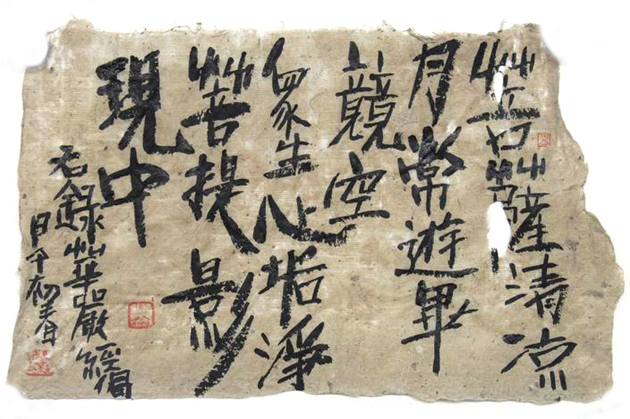 菩薩清涼
月常遊畢
競空
眾生心垢淨
菩提影
現中
右錄華嚴經偈
甲午初春